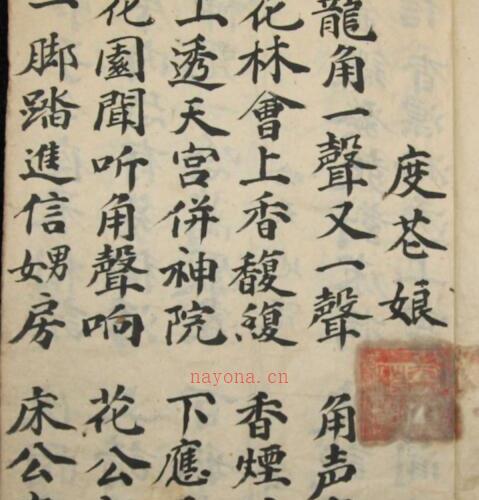 度苍娘
龍角一聲又一聲 角声
花林會上香馥複 香煙
上透天宮併神院 下應
花園聞听角聲响 花公
一脚踏進信男女房 床公
nayona.cn